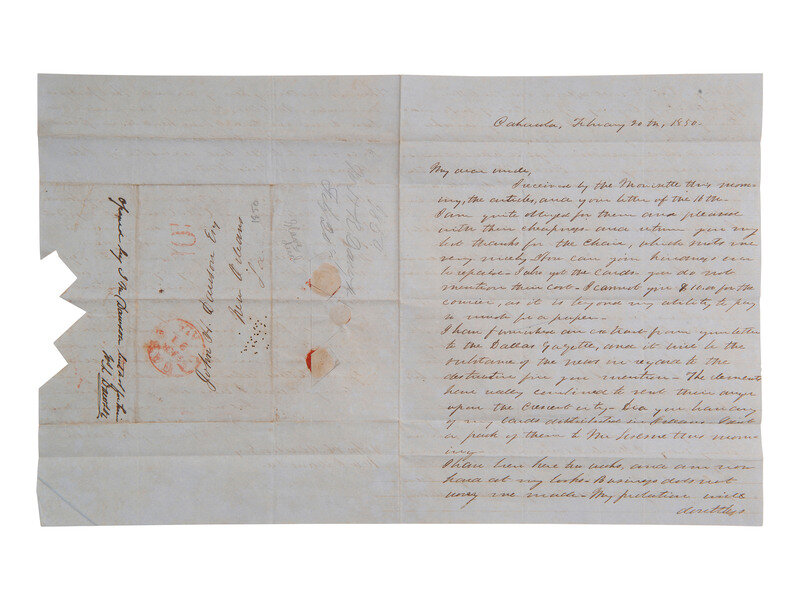 Opened by Jno Dawson
10
John H. Dawson Esq
New Orleans
La
1850
1850
Feb 20
Cahawba, February 20th, 1850.
My dear uncle,
I received by the Monticello this morn-
ing, the articles, and your letter of the 16th.
I am quite obliged for them and pleased
with their cheapness and return you my
best thanks for the Chair, which suits me
very nicely. How can your kindness ever
be repaid. I also got the Cards you do not
mention their cost. I cannot give $10.00 for the
courier, as it is beyond my ability to pay
so much for a paper.
I have furnished an extract from your letter
to the Dallas Gazette, and it will be the
substance of the news in regard to the
destructive fire you mention. The elements
have really combined to vent their anger
upon the Crescent city. Did you have any
of my Cards distributed in Orleans. I sent
a pack of them to Mr this morn-
ing.
I have been here two weeks, and am now
hard at my books. Business does not
worry me much. My probation will
doubtless